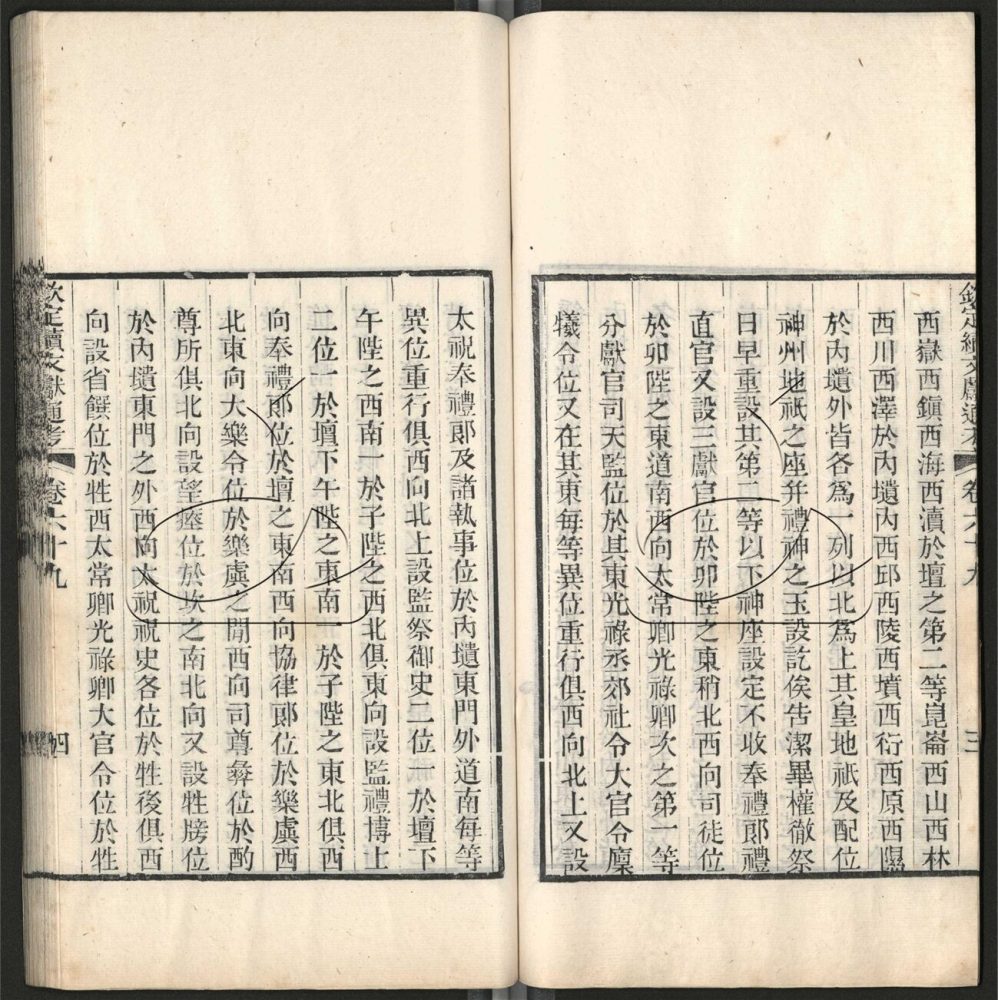 欽定續文獻通考 卷六十九 三
西嶽西鎮西海西瀆於壇之第二等崑崙西山西林
西川西澤於內壝內西邱西陵西墳西衍西原西隰
於內壝外皆各為一列以北為上其皇地祇及配位
神州地祇之座并禮神之玉設訖俟告潔畢權徹祭
日早重設其第二等以下神座設定不收奉禮郎禮
直官又設三獻官位於卯陛之東稍北西向司徒位
於卯陛之東道南西向太常卿光祿卿次之第一等
分獻官司天監位於其東光祿丞郊社令大官令廩
犧令位又在其東每等異位重行俱西向北上又設
太祝奉禮郎及諸執事位於內壝東門外道南每等
異位重行俱西向北上設監祭御史二位一於壇下
午陛之西南一於子陛之西北俱東向設監禮博士
二位一於壇下午陛之東南一於子陛之東北俱西
向奉禮郎位於壇之東南西向協律郎位於樂虡西
北東向大樂令位於樂虡之閒西向司尊彝位於酌
尊所俱北向設望瘞位於坎之南北向又設牲牓位
於內壝東門之外西向太祝祝史各位於牲後俱西
向設省饌位於牲西太常卿光祿卿大官令位於牲
欽定續文獻通考 卷六十九 四